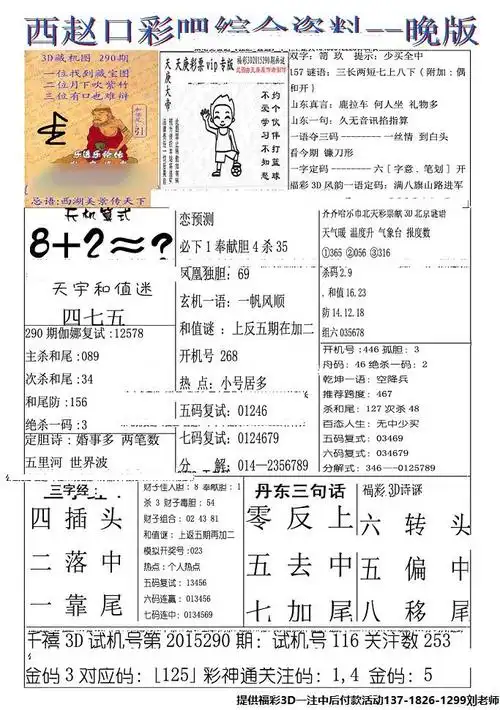 西赵口彩吧综合资料--晚版
3D藏机图 290期
一位找到藏宝图
二位月下吹紫竹
三位有口也难辩
引
乐逍乐恰恰
总语:西湖美景传天下
天庚大帝
天庚彩票vip专版
福彩3D2015290期画迷
不约
爱个
学伙
习伴
不打
知篮
悲球
双字: 箭 玖 提示: 少买全中
157谜语: 三长两短七上八下(附加: 偶
和开)
山东真言: 鹿拉车 何人坐 礼物多
山东一句: 久无音讯掐指算
一语夺三码----------一丝情 到白头
看今期 镰刀形
一字定码--------六[字意、笔划]开
福彩3D风韵一语定码: 满八旗山路进军
天机算式
8+2≈?
天宇和值迷
四七五
290期伽娜复试:12578
主杀和尾:089
次杀和尾:34
和尾防:156
绝杀一码:3
定胆诗: 婚事多 两笔数
五里河 世界波
恋预测
必下1奉献胆4杀35
凤凰独胆: 69
玄机一语: 一帆风顺
和值谜 : 上反五期在加二
开机号 268
热 点: 小号居多
五码复试: 01246
七码复试: 0124679
分 解: 014—2356789
齐齐哈尔市北天彩票献3D北京谜语
天气暖 温度升 气象台 报度数
①365 ②056 ③316
杀码2.9
,和值16.23
防14.12.18
组六035678
开机号:446 孤胆: 3
舟码: 46 绝杀一码: 2
乾坤一语: 空降兵
推荐跨度: 467
杀和尾: 127次杀48
百态人生: 无中少买
五码复式: 03469
六码复式: 034679
分解式: 346---0125789
三字经:
四 插 头
二 落 中
一 靠 尾
财子佳人胆: 8 奉献胆: 1
杀 3 财子毒胆: 54
财子组合: 02 43 81
和值谜: 上返五期再加二
模拟开机号:023
热点:个人热点
五码复试: 13456
六码连赢: 013456
七码连中: 0134569
丹东三句话
零 反 上
五 去 中
七 加 尾
福彩3D诗谜
六 转 头
五 偏 中
八 移 尾
千禧3D试机号第2015290期: 试机号116关注数253
金码3对应码: [125]彩神通关注码: 1,4 金码: 5
提供福彩3D一注中后付款活动137-1826-1299刘老师